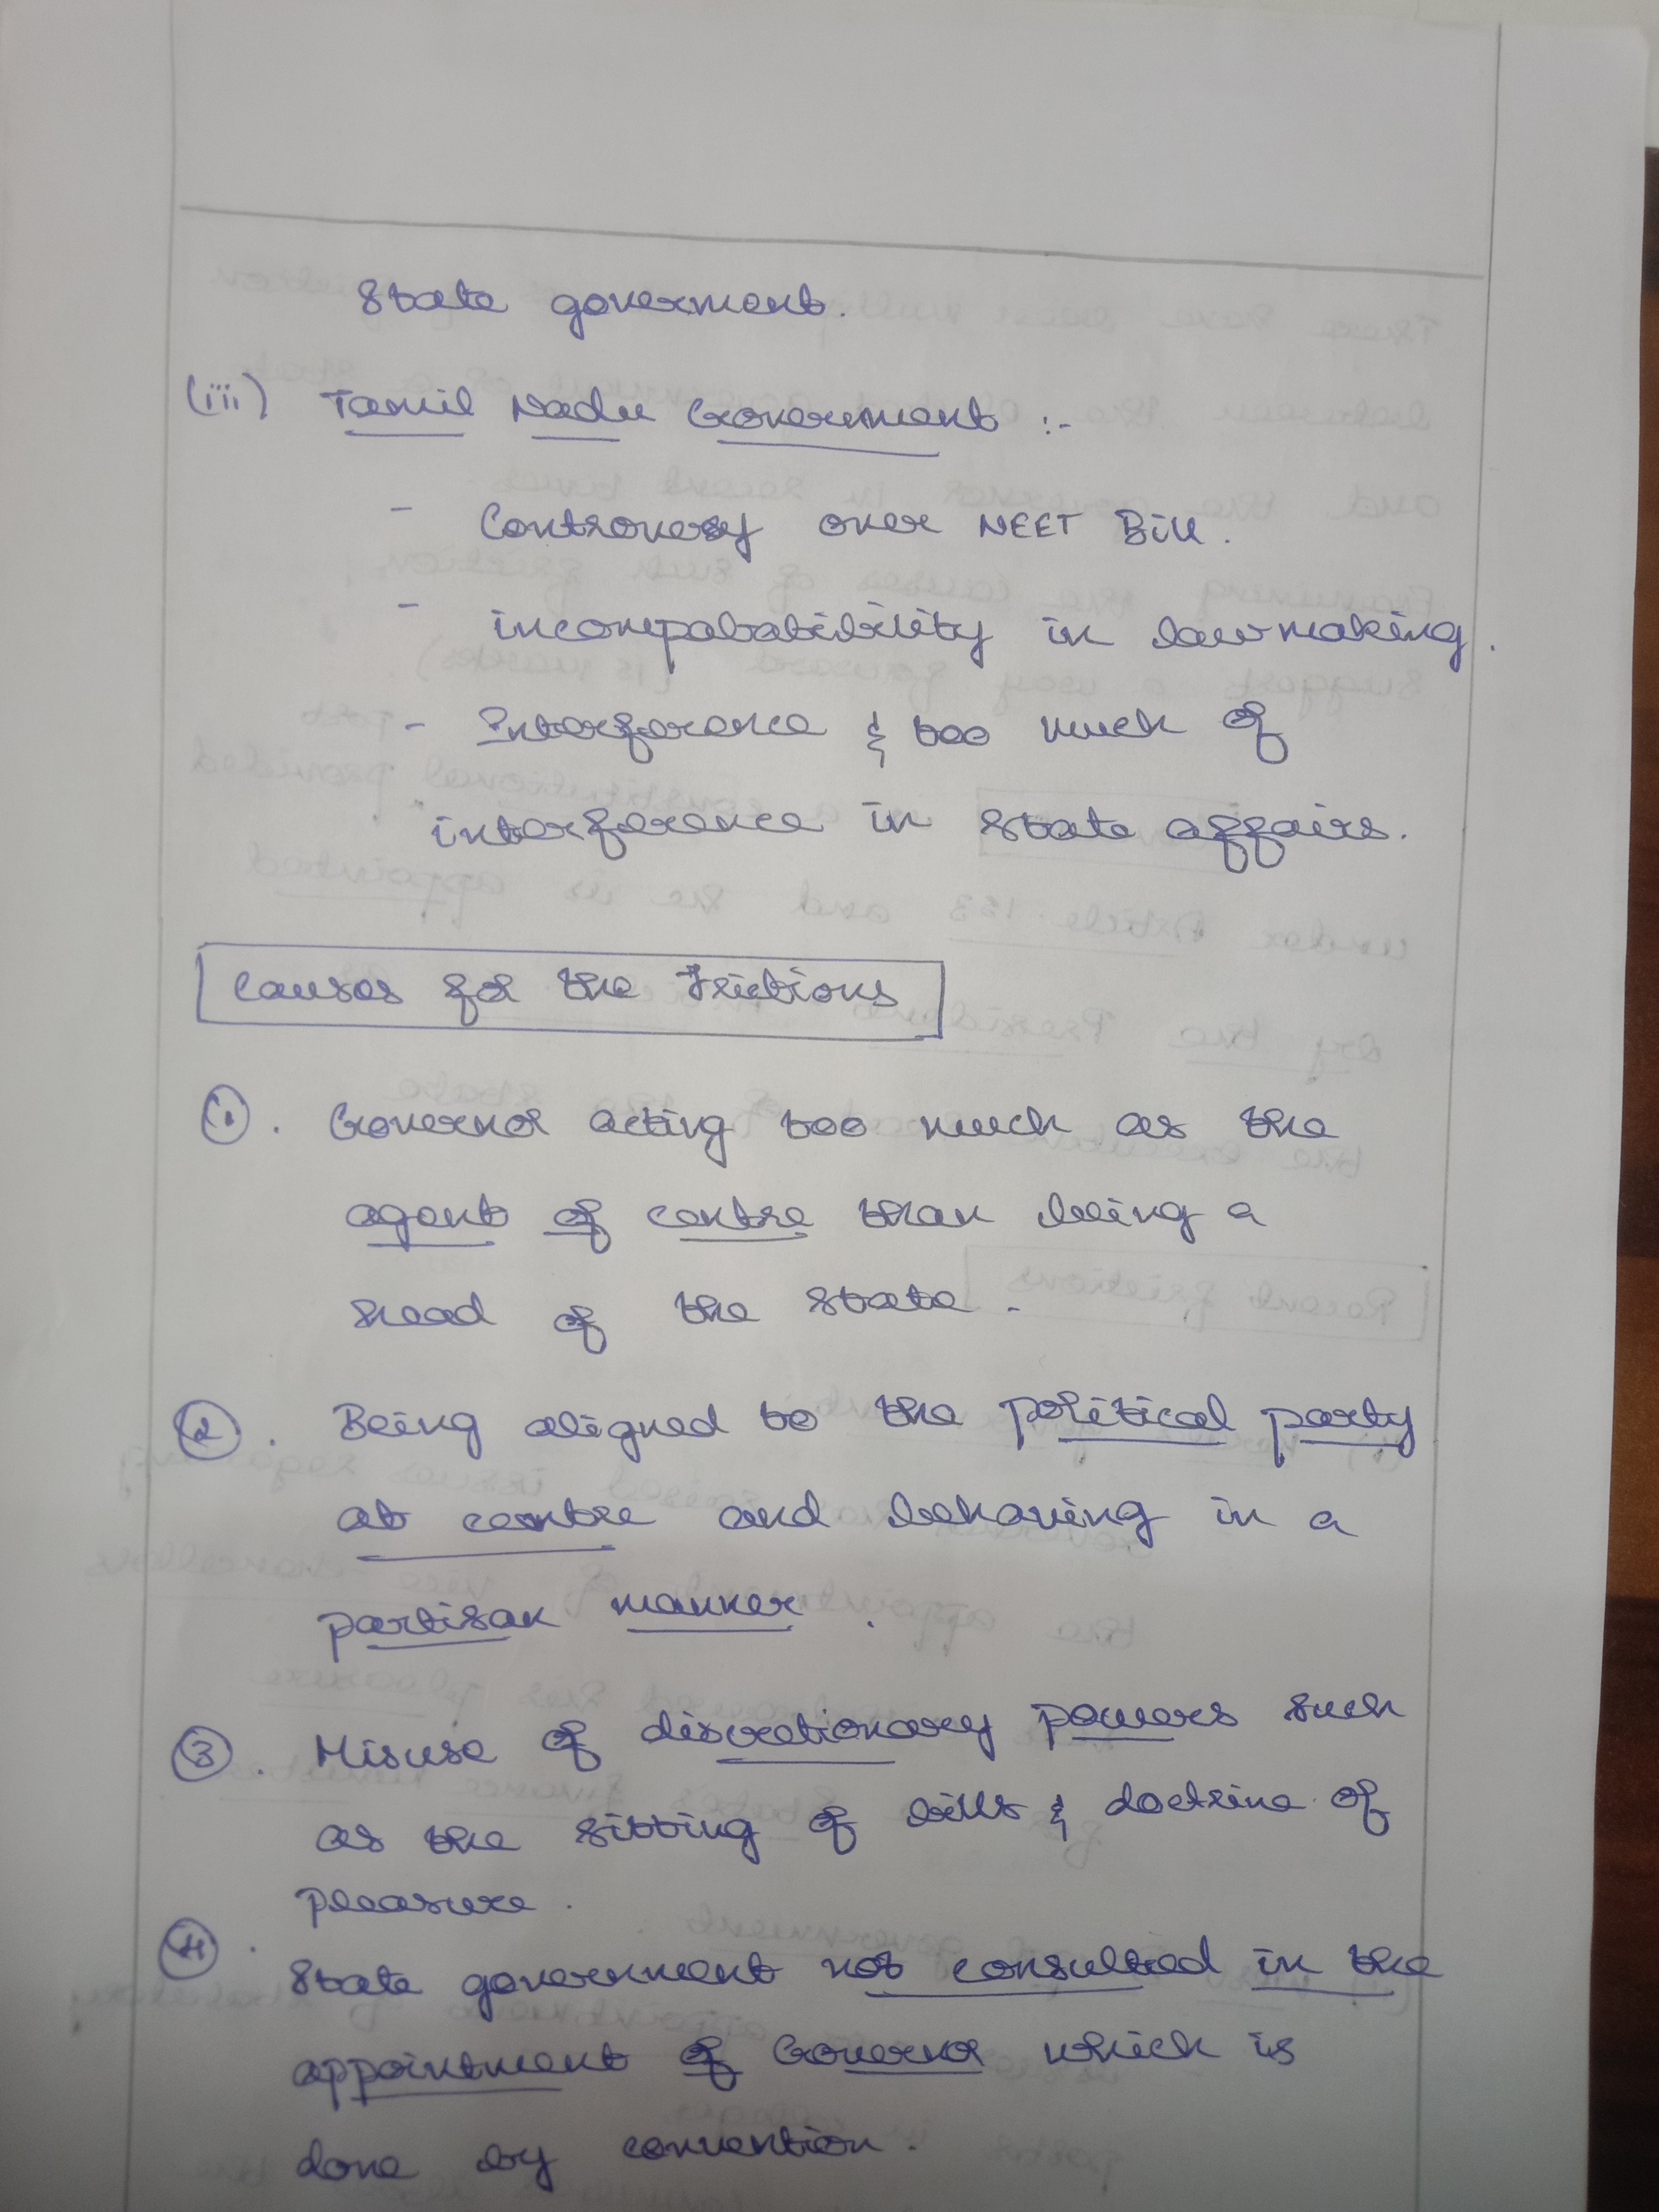 State goverment.
(iii) Tamil Nadu Government :-
- Controversy over NEET Bill.
- incompabatibility in lawmaking.
- Interference & too much of
interference in state affairs.
Causes for the Frictions
1. Governor acting too much as the
agent of centre than being a
head of the state.
2. Being aligned to the political party
at centre and behaving in a
partisan manner.
3. Misuse of discretionary powers such
as the sitting of bills & doctrine of
pleasure.
4. State government not consulted in the
appointment of Governor which is
done by convention.